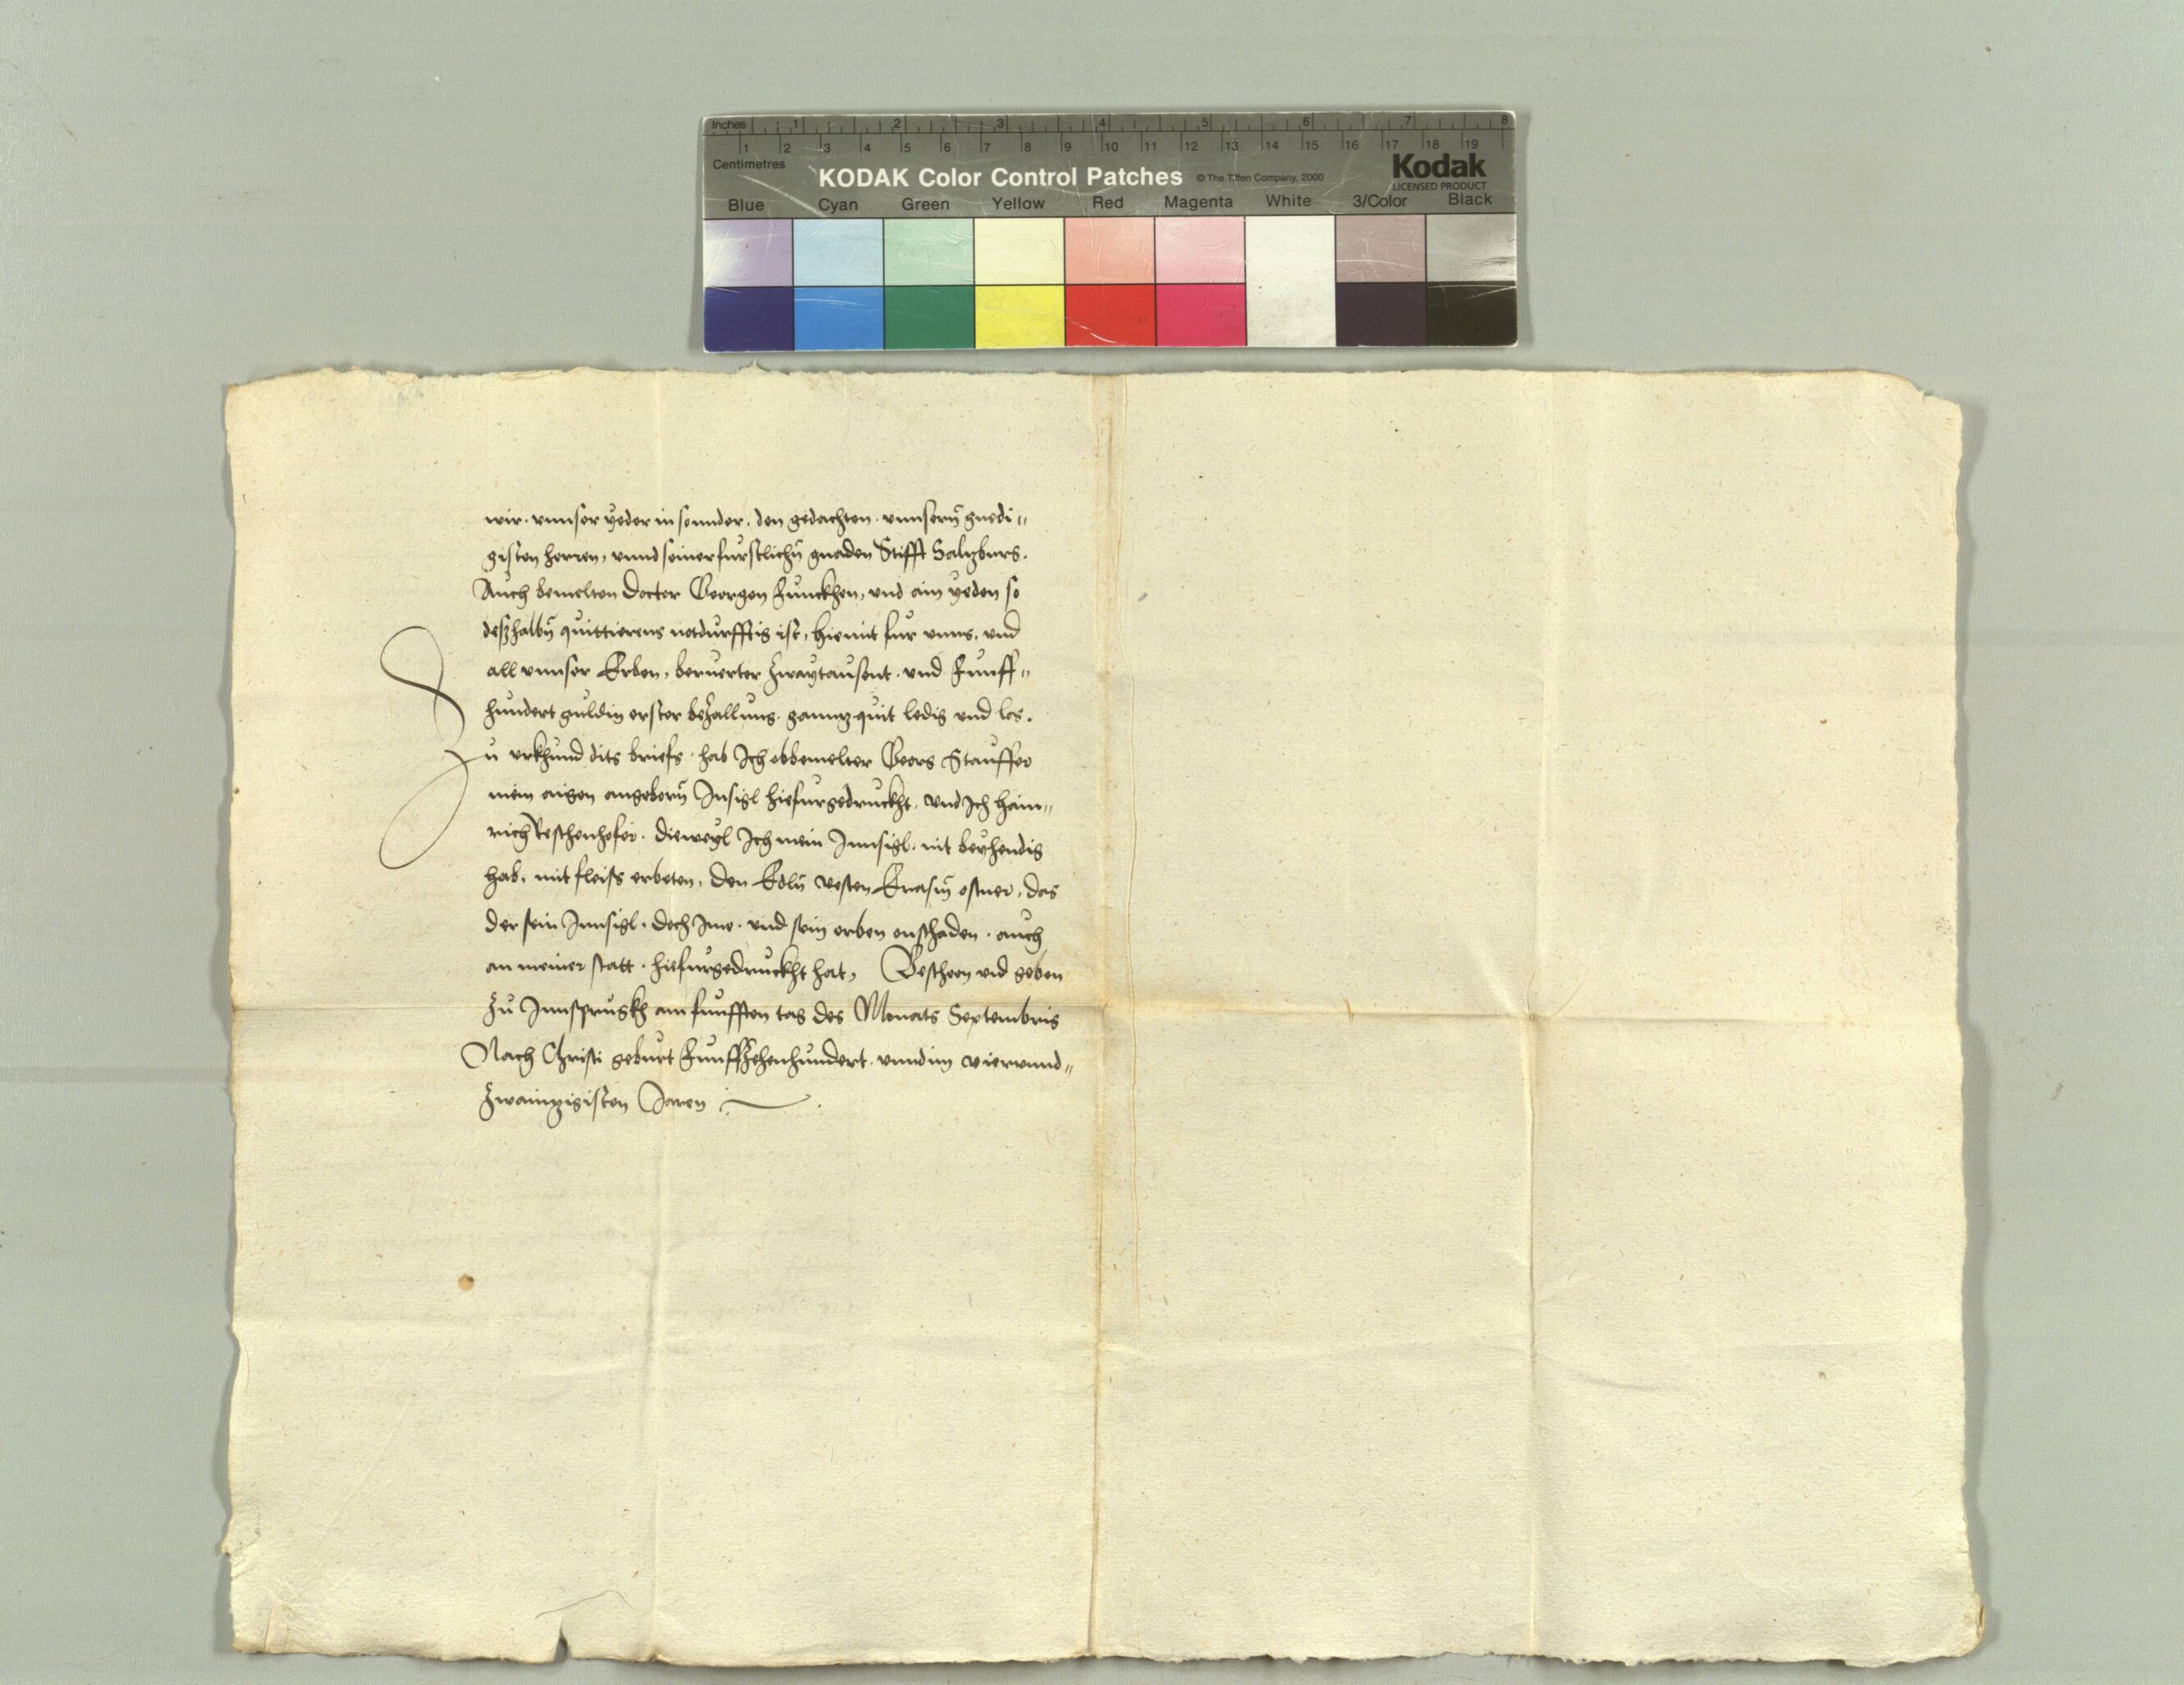 Inches 1 2 3 4 5 6 7 8
1 2 3 4 5 6 7 8 9 10 11 12 13 14 15 16 17 18 19
Centimetres
KODAK Color Control Patches © The Tiffen Company, 2000 Kodak
LICENSED PRODUCT
Blue Cyan Green Yellow Red Magenta White 3/Color Black
wir. vnnser yeder in sonnder. den gedachten. vnnsern gnedi„
gisten herren, vnnd seiner furstlichn gnaden Stifft Saltzburg.
Auch bemelten Doctor Georgen Funckhen, vnd ain yeden so
deßhalbn quittierens notdurfftig ist, hiemit fur vnns, vnd
all vnnser Erben, beruerter Zwaytausent. vnd Funff„
hundert guldin erster bezallung. ganntz quit ledig vnd los.
Zu vrkhund dits briefs. hab Ich obbemelter Georg Stauffer
mein aigen angeborn Insigl hiefurgedruckht, vnd Ich Hain„
rich Reschenhofer. dieweyl Ich mein Innsigl. nit beyhendig
hab, mit fleiss erbeten, den Edln vesten Erasm ostner, das
der sein Innsigl. doch Ime. vnd sein erben onschaden. auch
an meiner statt. hiefurgedruckht hat, Gescheen vnd geben
Zu Innsprugkh am funfften tag des Monats Septembris
Nach Christi geburt Funffzehenhundert. vnnd im vierund„
zwaintzigisten Jaren